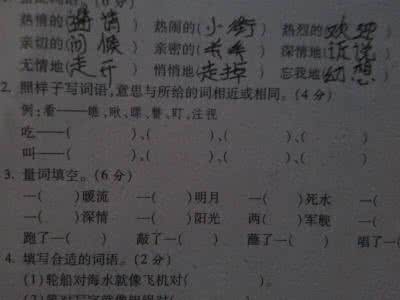 热情的(   )  热闹的(小街)  热烈的(欢迎)
亲切的(问候)  亲密的(   )  深情地(诉说)
无情地(走开)  悄悄地(走掉)  忘我地(幻想)
2. 照样子写词语,意思与所给的词相近或相同。(4分)
例:看——瞧、瞅、     盯、注视
吃——(   )、(   )、(   )、(   )
叫——(   )、(   )、(   )、(   )
3. 量词填空。(6分)
一(   )暖流  一(   )明月  一(   )死水  一(
一(   )深情  一(   )阳光  两(   )军舰  一(
跑了一(   )  敲了一(   )  蘸了一(   )  唱了一(
4. 填写合适的词语。(2分)
(1)轮船对海水就像飞机对(   )。